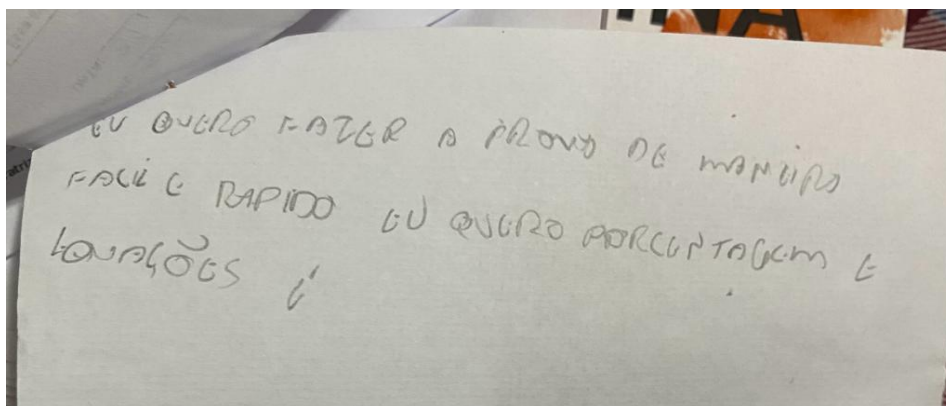 INA
EU QUERO FAZER A PROVA DE MANEIRA
FACIL E RAPIDO EU QUERO PORCENTAGEM E
EQUAÇÕES É